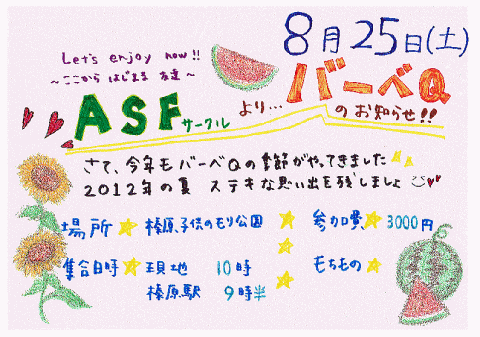 8月25日(土)
Let's enjoy now!!
～ここから はじまる 友達～
バーベQ
ASFサークル より… のお知らせ!!
さて、今年もバーベQの季節がやってきました
2012年の夏 ステキな思い出を残しましょ
場所 榛原子供のもり公園 参加費 3000円
集合日時 現地 10時 もちもの
榛原駅 9時半